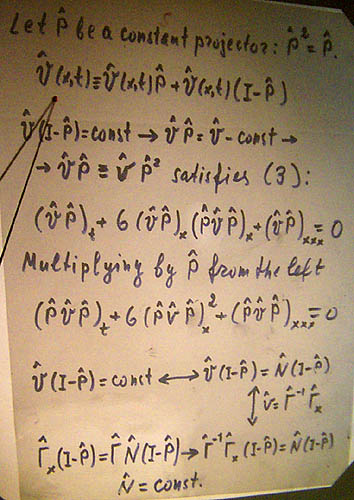 Let P̂ be a constant projector: P̂² = P̂.
v̂(x,t) ≡ v̂(x,t)P̂ + v̂(x,t)(I-P̂)
v̂(I-P̂) = const → v̂P̂ = v̂ - const →
→ v̂P̂ ≡ v̂P̂² satisfies (3):
(v̂P̂)ₜ + 6(v̂P̂)ₓ(P̂v̂P̂)ₓ + (v̂P̂)ₓₓₓ = 0
Multiplying by P̂ from the left
(P̂v̂P̂)ₜ + 6(P̂v̂P̂)ₓ² + (P̂v̂P̂)ₓₓₓ = 0
v̂(I-P̂) = const ↔ v̂(I-P̂) = N̂(I-P̂)
↕ v̂ = Γ̂⁻¹Γ̂ₓ
Γ̂ₓ(I-P̂) = Γ̂N̂(I-P̂) → Γ̂⁻¹Γ̂ₓ(I-P̂) = N̂(I-P̂)
N̂ = const.